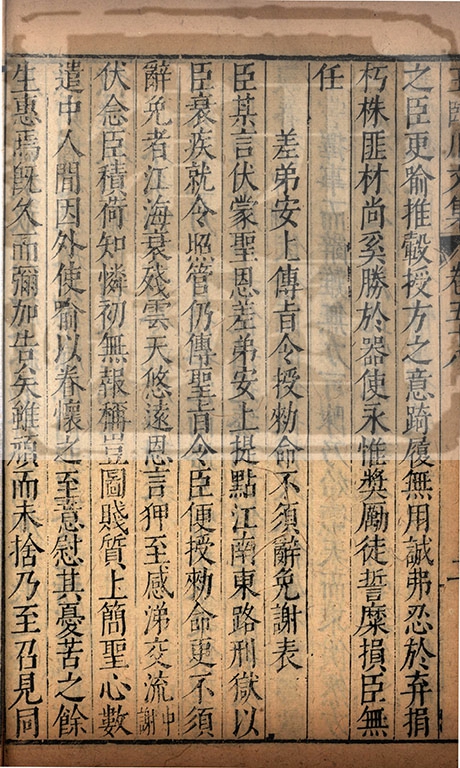 王臨川文集 卷五十八
之臣更喻推轂授方之意踦履無用誠弗忍於弃捐
朽株匪材尚奚勝於器使永惟獎勵徒誓糜損臣無
任
差弟安上傳旨令授勑命不須辭免謝表
臣某言伏蒙聖恩差弟安上提點江南東路刑獄以
臣衰疾就令照管仍傳聖旨令臣便授勑命更不須
辭免者江海衰殘雲天悠遠恩言狎至感涕交流中謝
伏念臣積荷知憐初無報稱豈圖賤質上簡聖心數
遣中人間因外使喻以眷懷之至意慰其憂苦之餘
生惠焉旣久而彌加告矣雖頑而未捨乃至召見同